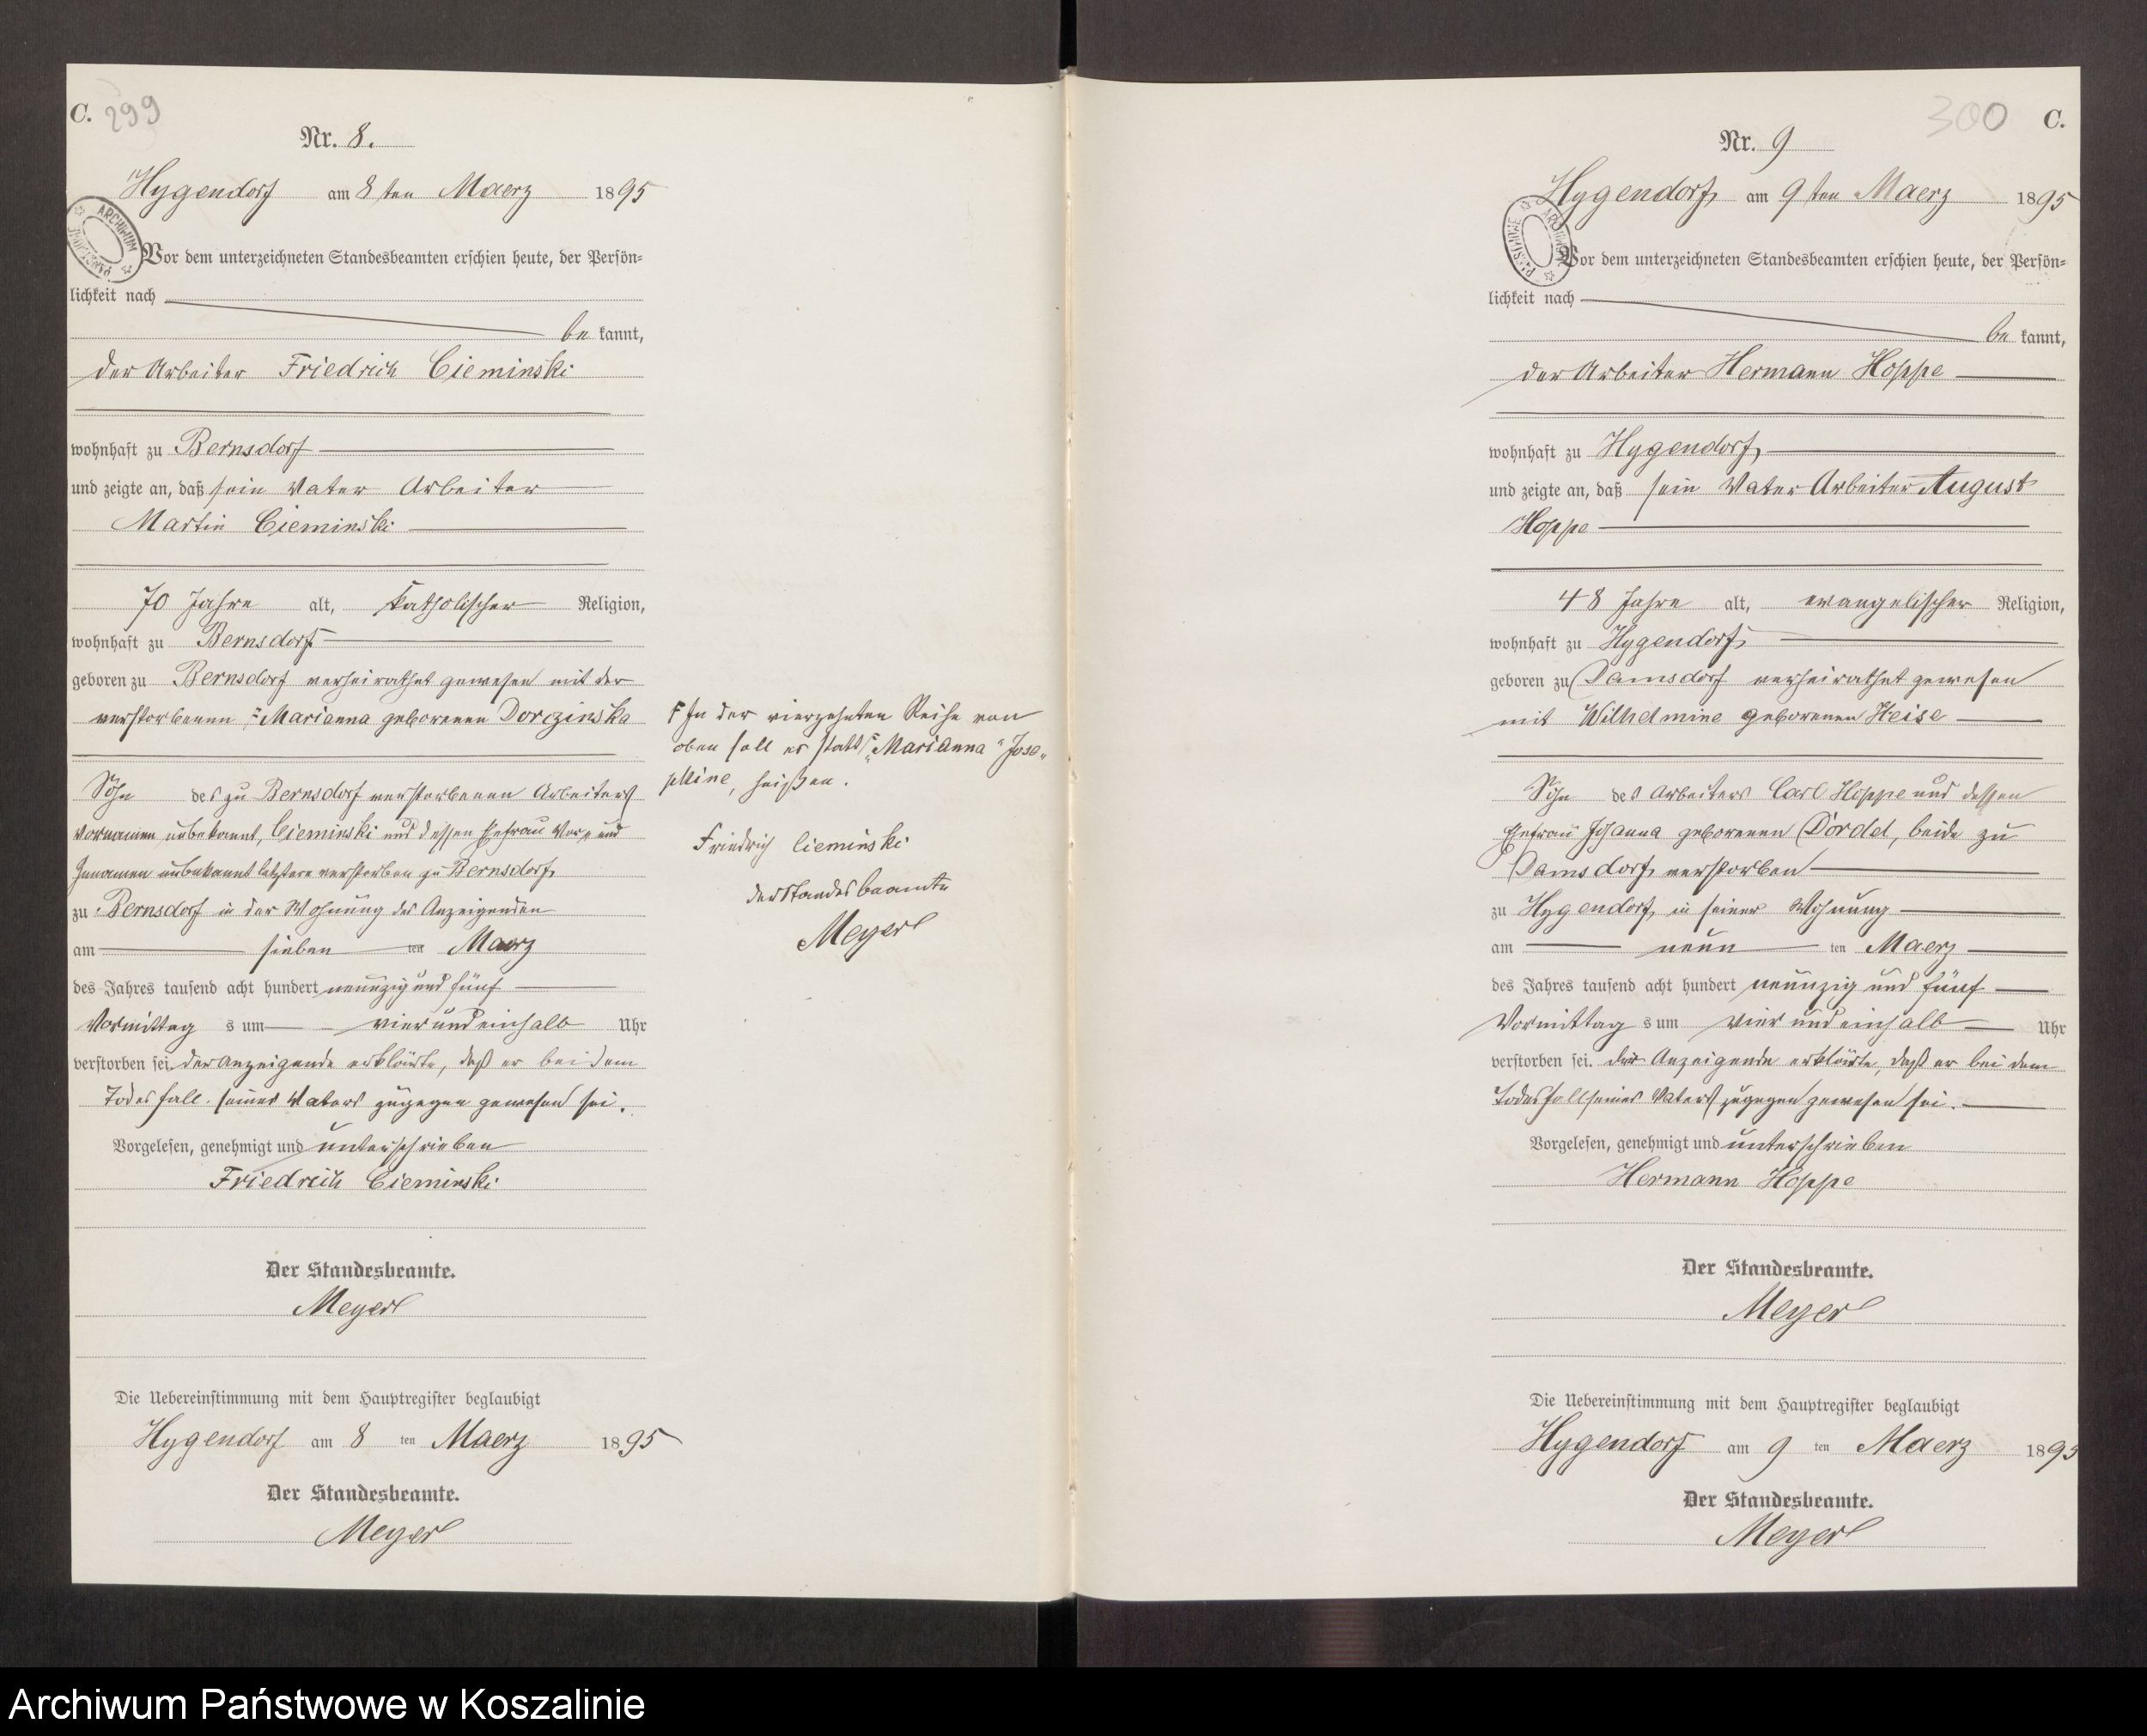 C. 299
Nr. 8.
Hygendorf am 8ten Maerz 1895
ARCHIWUM PAŃSTWOWE
Vor dem unterzeichneten Standesbeamten erschien heute, der Persön-
lichkeit nach
be kannt,
der Arbeiter Friedrich Cieminski
wohnhaft zu Bernsdorf
und zeigte an, daß sein Vater Arbeiter
Martin Cieminski
70 Jahre alt, katholischer Religion,
wohnhaft zu Bernsdorf
geboren zu Bernsdorf verheirathet gewesen mit der
verstorbenen Marianna geborenen Dorczinska
Sohn des zu Bernsdorf verstorbenen Arbeiters
Vornamen unbekannt, Cieminski und dessen Ehefrau Vor- und
Zunamen unbekannt letztere verstorben zu Bernsdorf
zu Bernsdorf in der Wohnung des Anzeigenden
am sieben ten Maerz
des Jahres tausend acht hundert neunzig und fünf
Vormittag s um vier und einhalb Uhr
verstorben sei. der Anzeigende erklärte, daß er bei dem
Todesfall seines Vaters zugegen gewesen sei.
Vorgelesen, genehmigt und unterschrieben
Friedrich Cieminski
Der Standesbeamte.
Meyer
Die Uebereinstimmung mit dem Hauptregister beglaubigt
Hygendorf am 8 ten Maerz 1895
Der Standesbeamte.
Meyer
In der vierzehnten Reihe von
oben soll es statt "Marianna" "Jose-
phine, heißen.
Friedrich Cieminski
der Standesbeamte
Meyer
300 C.
Nr. 9
Hygendorf am 9ten Maerz 1895
ARCHIWUM PAŃSTWOWE
Vor dem unterzeichneten Standesbeamten erschien heute, der Persön-
lichkeit nach
be kannt,
der Arbeiter Hermann Hoppe
wohnhaft zu Hygendorf
und zeigte an, daß sein Vater Arbeiter August
Hoppe
48 Jahre alt, evangelischer Religion,
wohnhaft zu Hygendorf
geboren zu Damsdorf verheirathet gewesen
mit Wilhelmine geborenen Heise
Sohn des Arbeiters Carl Hoppe und dessen
Ehefrau Johanna geborenen Dordel, beide zu
Damsdorf verstorben
zu Hygendorf, in seiner Wohnung
am neun ten Maerz
des Jahres tausend acht hundert neunzig und fünf
Vormittag s um vier und einhalb Uhr
verstorben sei. der Anzeigende erklärte, daß er bei dem
Todesfall seines Vaters zugegen gewesen sei.
Vorgelesen, genehmigt und unterschrieben
Hermann Hoppe
Der Standesbeamte.
Meyer
Die Uebereinstimmung mit dem Hauptregister beglaubigt
Hygendorf am 9 ten Maerz 1895
Der Standesbeamte.
Meyer
Archiwum Państwowe w Koszalinie